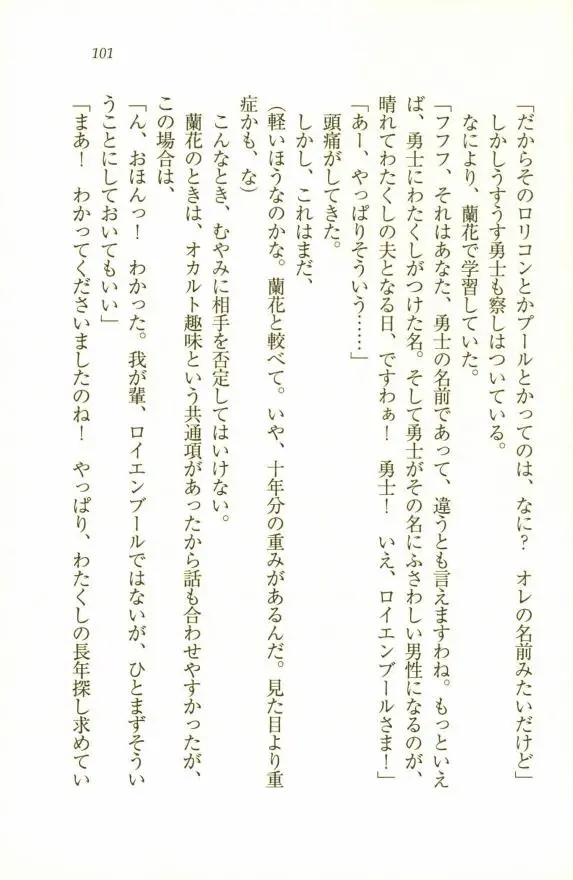 101
「だからそのロリコンとかプールとかってのは、なに？　オレの名前みたいだけど」
しかしうすうす勇士も察しはついている。
なにより、蘭花で学習していた。
「フフフ、それはあなた、勇士の名前であって、違うとも言えますわね。もっといえ
ば、勇士にわたくしがつけた名。そして勇士がその名にふさわしい男性になるのが、
晴れてわたくしの夫となる日、ですわぁ！　勇士！　いえ、ロイエンブールさま！」
「あー、やっぱりそういう……」
頭痛がしてきた。
しかし、これはまだ、
（軽いほうなのかな。蘭花と較べて。いや、十年分の重みがあるんだ。見た目より重
症かも、な）
こんなとき、むやみに相手を否定してはいけない。
蘭花のときは、オカルト趣味という共通項があったから話も合わせやすかったが、
この場合は、
「ん、おほんっ！　わかった。我が輩、ロイエンブールではないが、ひとまずそうい
うことにしておいてもいい」
「まあ！　わかってくださいましたのね！　やっぱり、わたくしの長年探し求めてい